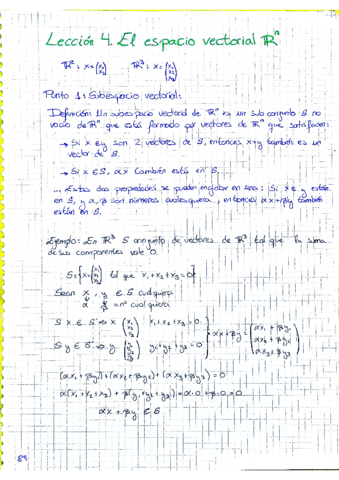 Lección 4. El espacio vectorial ℝⁿ
ℝ²: x=(x₁ x₂) ℝ³: x=(x₁ x₂ x₃)
Punto 1: Subespacio vectorial:
Definición: Un subespacio vectorial de ℝⁿ es un subconjunto S no
vacío de ℝⁿ que está formado por vectores de ℝⁿ que satisfacen:
→ Si x e y son 2 vectores de S, entonces x+y también es un
vector de S.
→ Si x ∈ S, αx también está en S.
... Estas dos propiedades se pueden englobar en una: Si x e y están
en S, y α, β son números cualesquiera, entonces αx+βy también
están en S.
Ejemplo: En ℝ³ S conjunto de vectores de ℝ³ tal que la suma
de sus componentes vale 0.
S={x=(x₁ x₂ x₃) tal que x₁+x₂+x₃=0}
Sean x, y ∈ S cualquiera
α β = nº cualquiera
Si x ∈ S ⇒ x (x₁ x₂ x₃) x₁+x₂+x₃=0
αx+βy=(αx₁+βy₁ αx₂+βy₂ αx₃+βy₃)
Si y ∈ S ⇒ y (y₁ y₂ y₃) y₁+y₂+y₃=0
(αx₁+βy₁)+(αx₂+βy₂)+(αx₃+βy₃)=0
α(x₁+x₂+x₃)+β(y₁+y₂+y₃)=α·0+β·0=0
αx+βy ∈ S